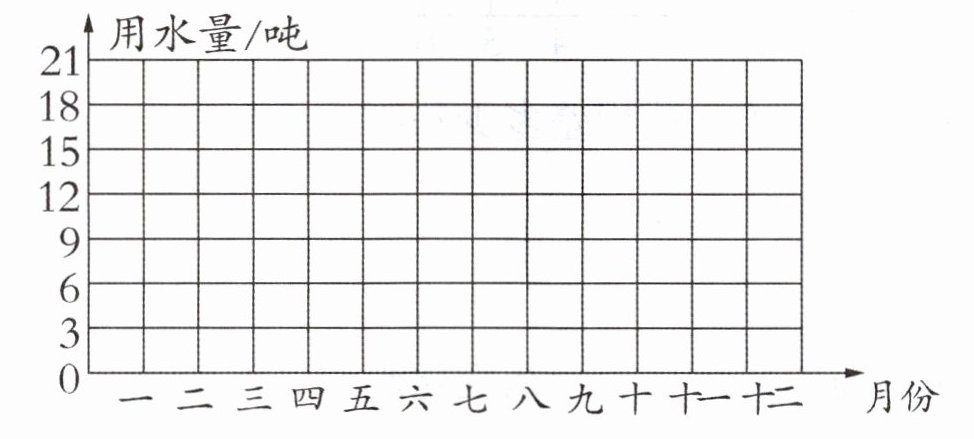 用水量/吨
21
18
15
12
9
6
3
0
一 二 三 四 五 六 七 八 九 十 十一 十二 月份